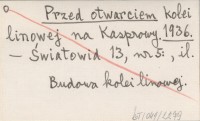 Przed otwarciem kolei
linowej na Kasprowy. 1936.
– Światowid 13, nr 5: , il.
Budowa kolei linowej.